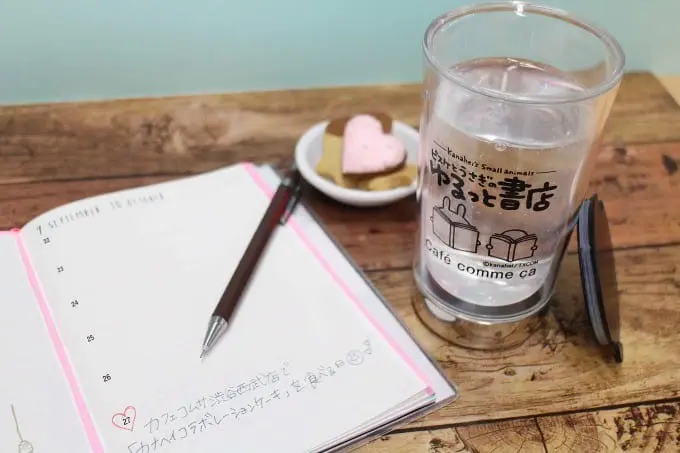 9 SEPTEMBER 10 OCTOBER
22
23
24
25
26
27
カフェコムサ渋谷西武店で
「カナヘイコラボレーションケーキ」を食べる日
Kanahei's Small animals
ピスケとうさぎの
ゆるっと書店
©kanahei/TXCOM
Café comme ça